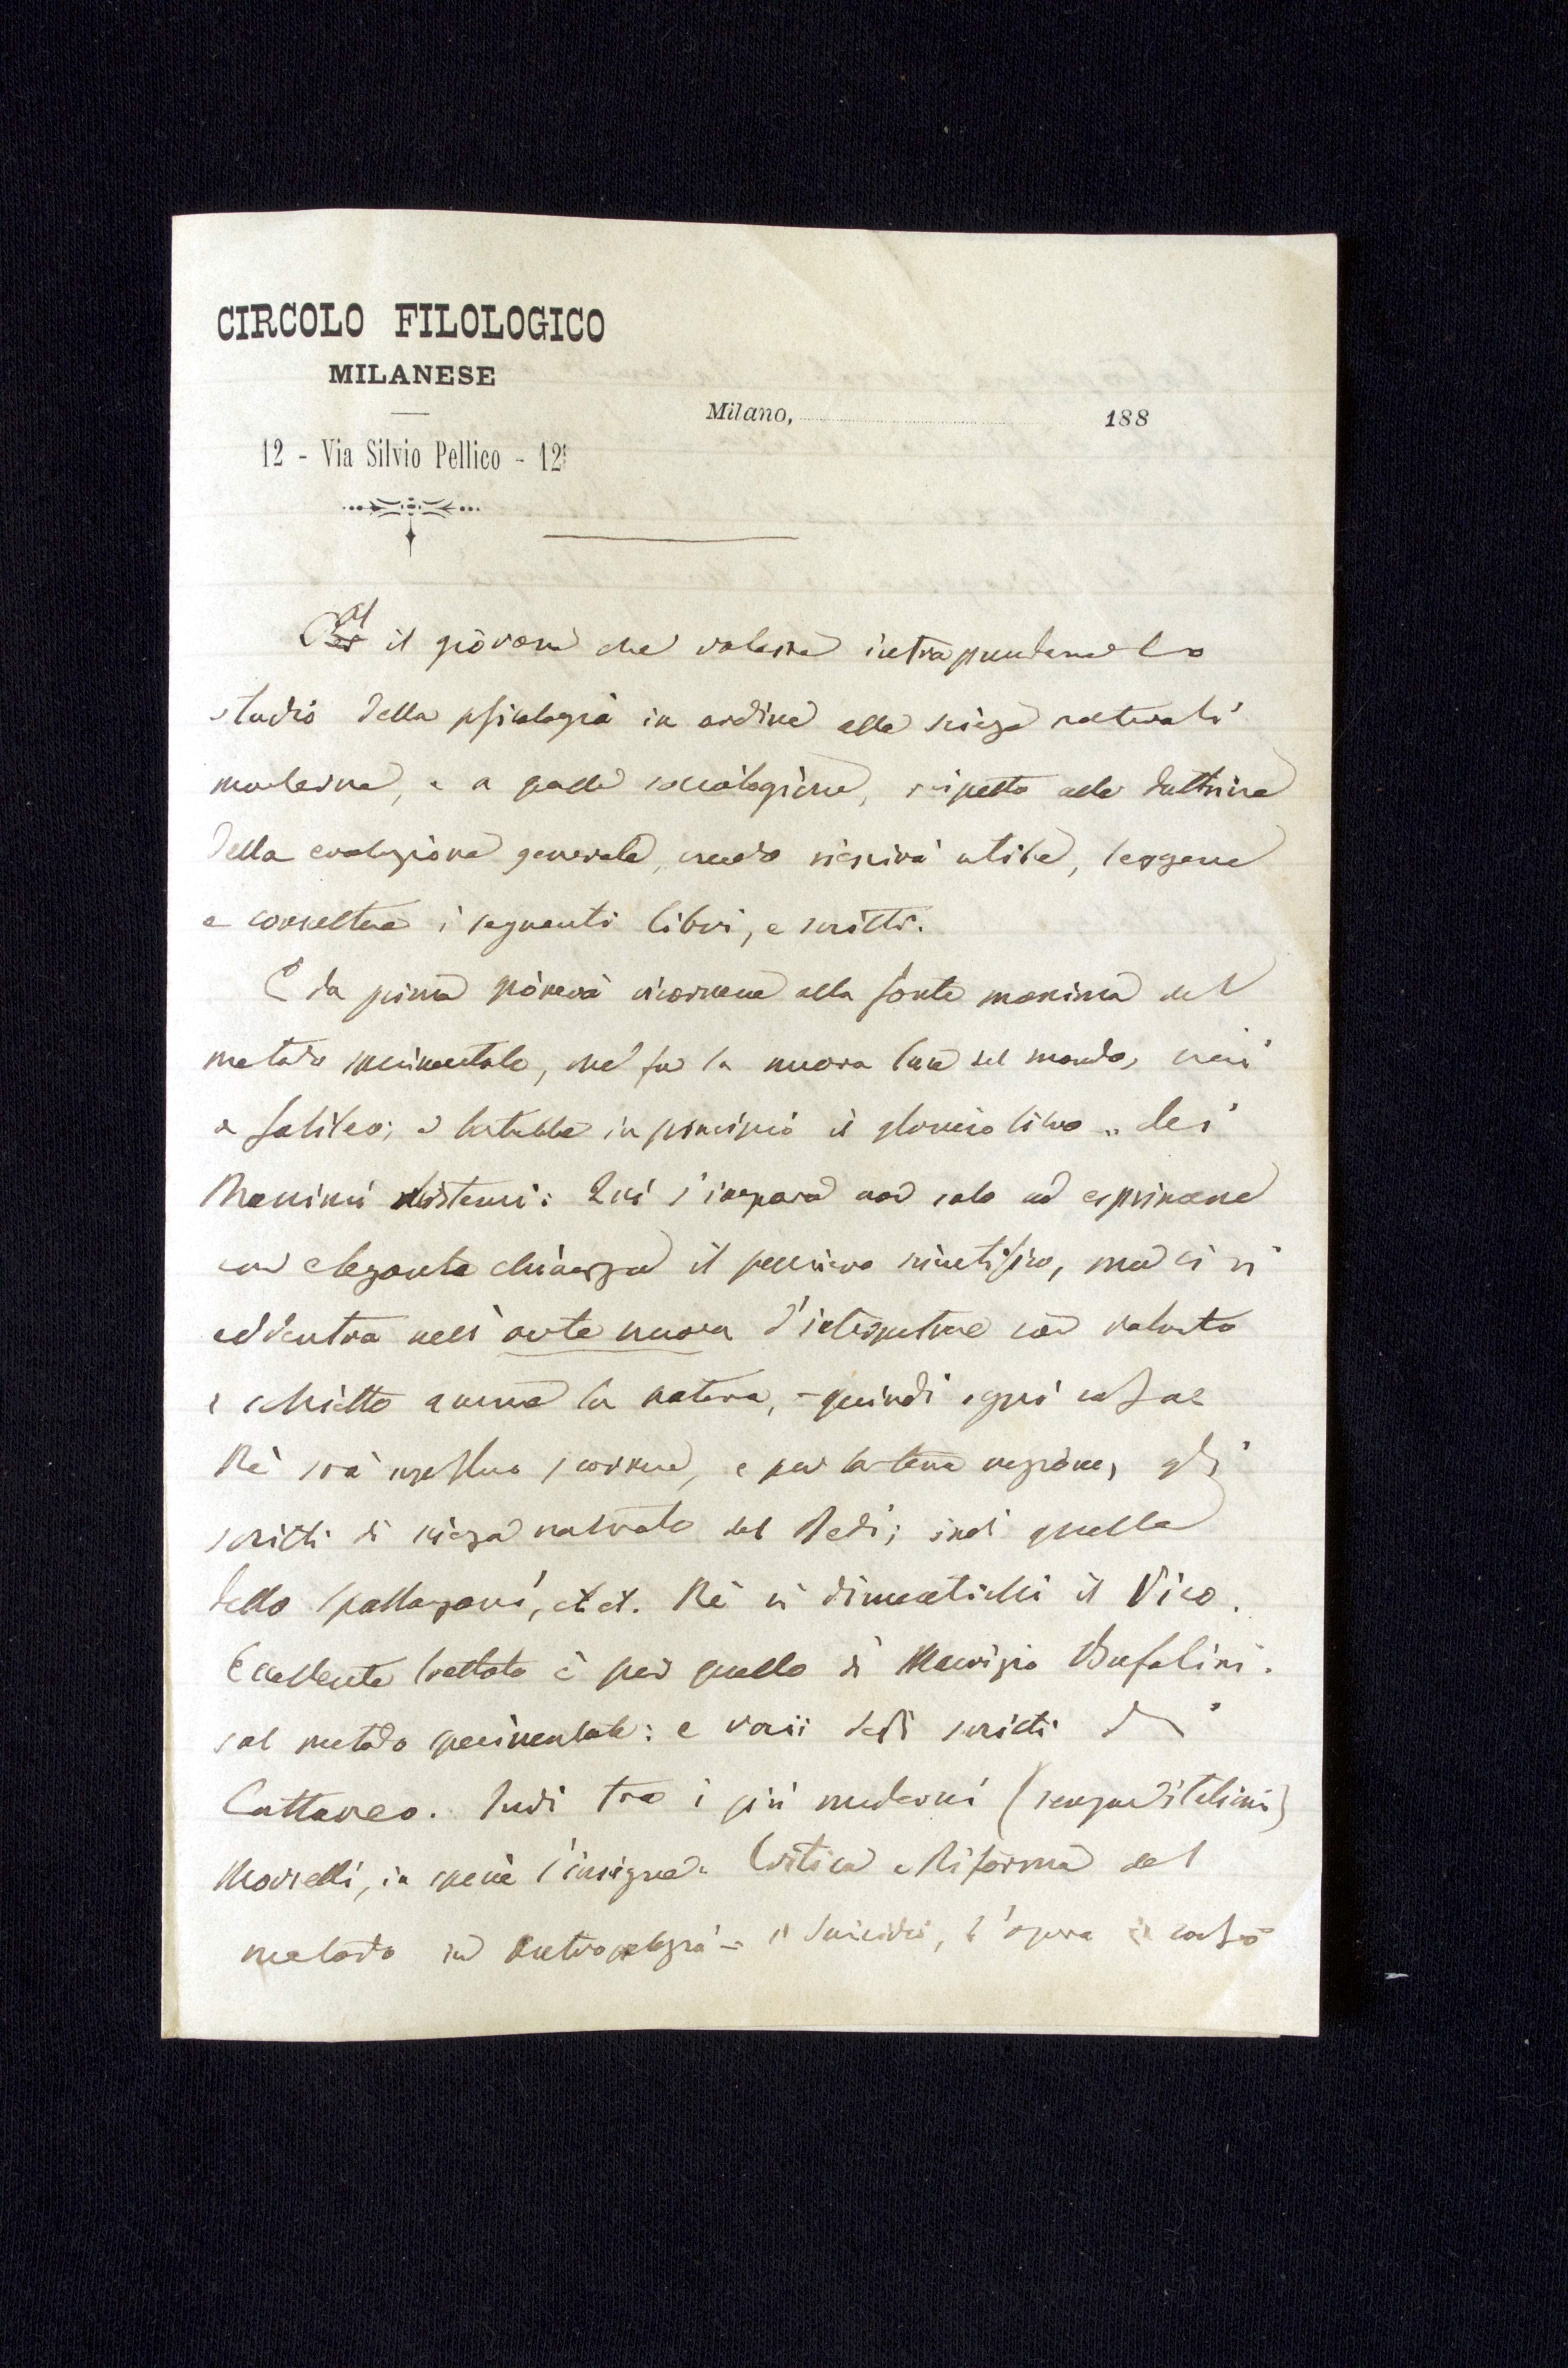 CIRCOLO FILOLOGICO
MILANESE
Milano, 188
12 - Via Silvio Pellico - 12
Al il giovane che volesse intraprendere lo
studio della psicologia in ordine alle scienze naturali
moderne, e a quelle sociologiche, rispetto alla dottrina
della evoluzione generale, credo riescirà utile, leggere
e consultare i seguenti libri, e scritti.
E da prima gioverà ricorrere alla fonte massima del
metodo sperimentale, che fu la nuova luce del mondo, cioè
a Galileo; e in principio il glorioso libro dei
Massimi Sistemi: Qui s'impara non solo ad esprimere
con elegante chiarezza il pensiero scientifico, ma ci si
addentra nell'arte nuova d'interpretare con
e schietto la natura, - quindi
Nè sarà scorrere, e per gli
scritti di scienza naturale del Redi; indi quelle
dello Spallanzani, et et. Nè si dimentichi il Vico.
Eccellente trattato è pur quello di Maurizio Bufalini.
sul metodo sperimentale: e varii degli scritti di
Cattaneo. Indi tra i più moderni (sempre italiani)
Morselli, in specie l'insigne Critica e Riforma del
metodo in Antropologia - il Suicidio, l'opera in corso